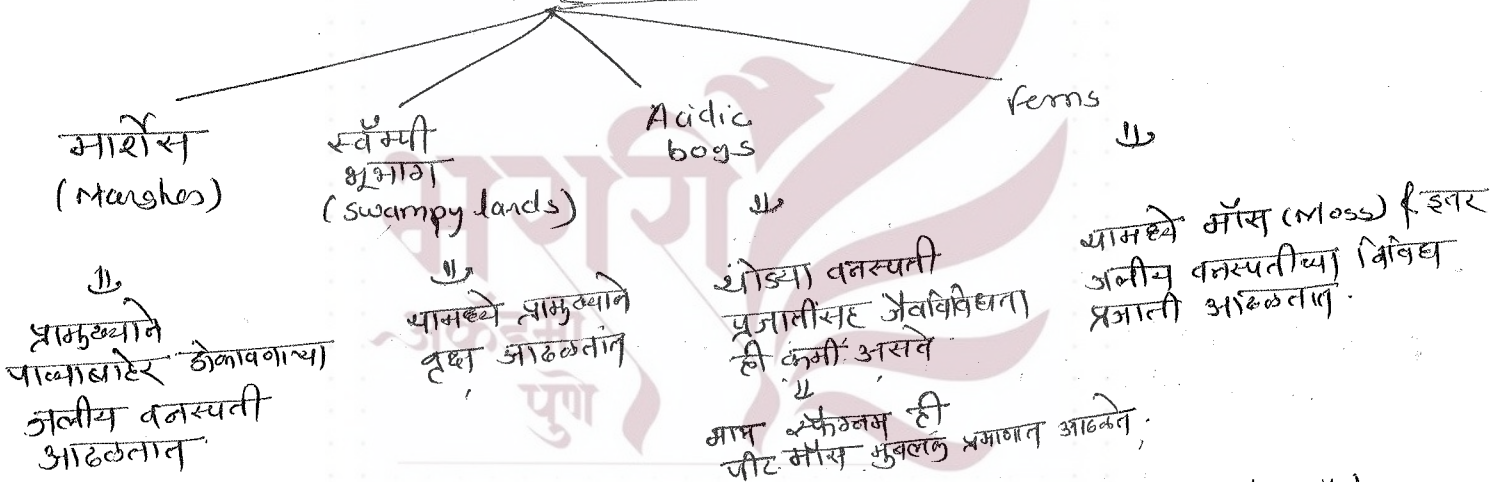 मार्शेस
(Marshes)
प्रामुख्याने
पाण्याबाहेर डोकावणाऱ्या
जलीय वनस्पती
आढळतात
स्वॅम्पी
भूभाग
(swampy lands)
यामध्ये प्रामुख्याने
वृक्ष आढळतात
Acidic
bogs
थोड्या वनस्पती
प्रजातींसह जैवविविधता
ही कमी असते
मात्र स्फॅग्नम ही
पीट मॉस मुबलक प्रमाणात आढळते.
ferns
यामध्ये मॉस (Moss) & इतर
जलीय वनस्पतीच्या विविध
प्रजाती आढळतात.
भगीरथ
अकॅडमी
पुणे